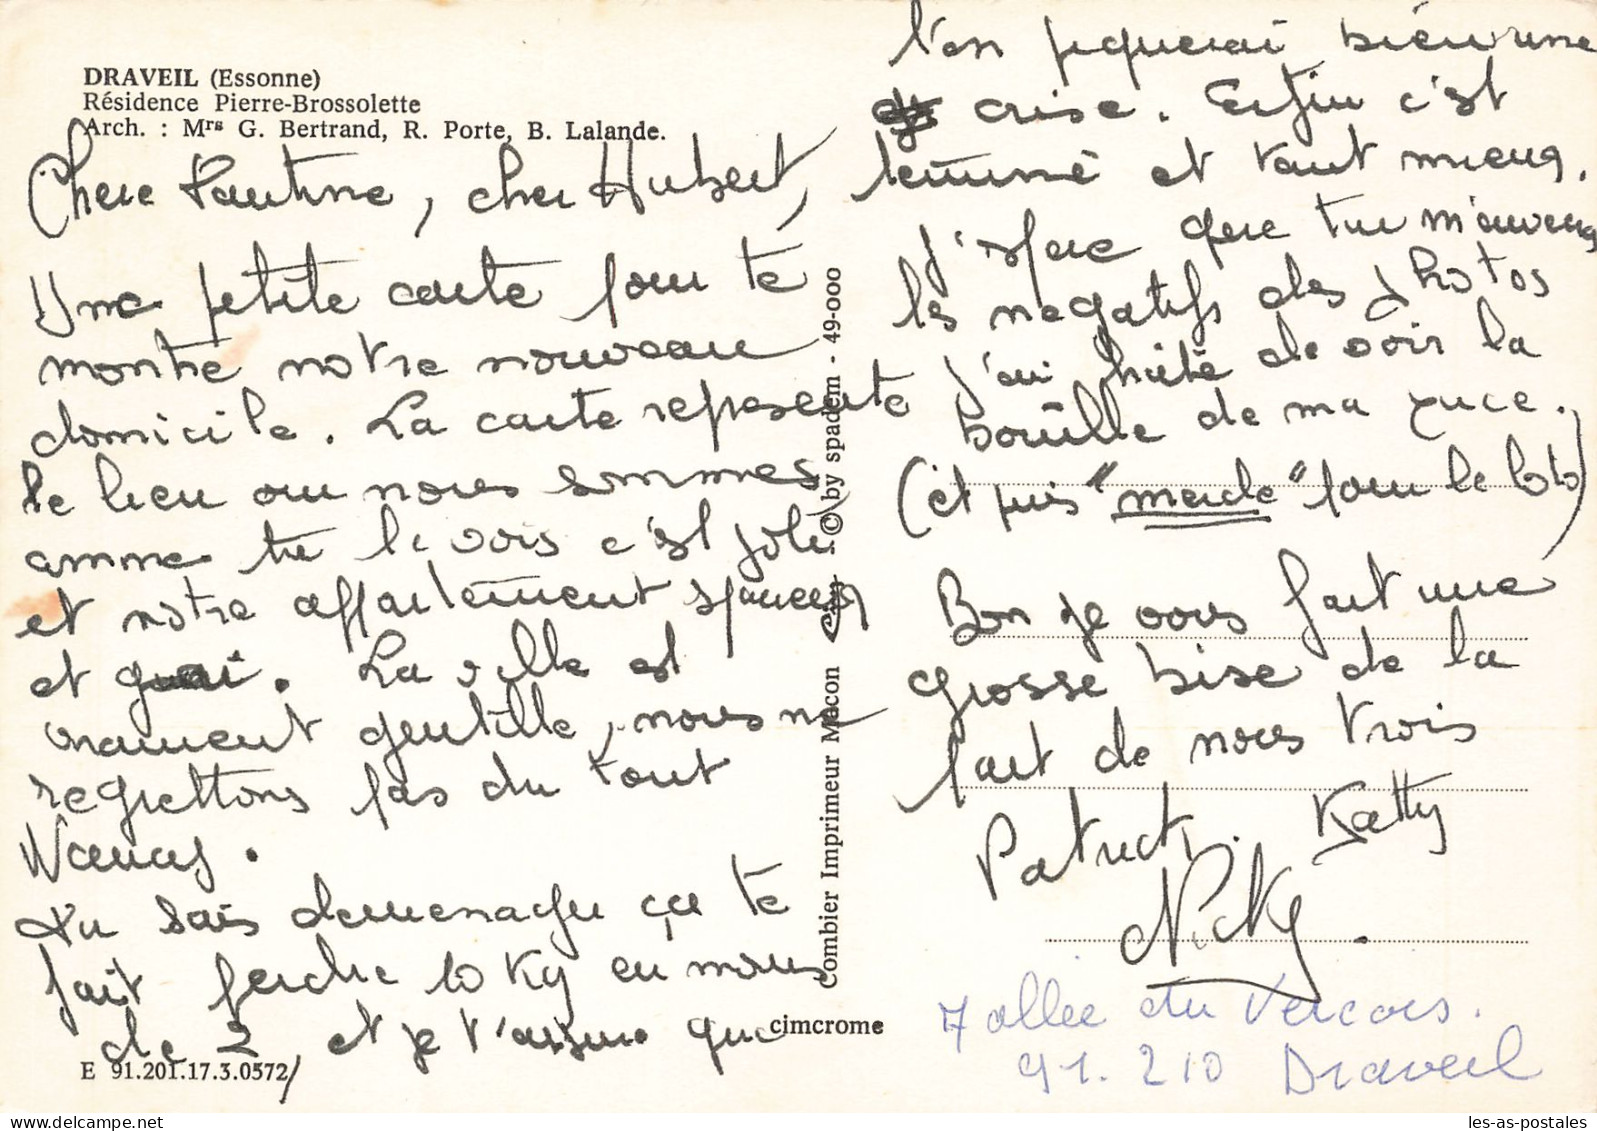 DRAVEIL (Essonne)
Résidence Pierre-Brossolette
Arch. : Mrs G. Bertrand, R. Porte, B. Lalande.
Chere , cher Hubert,
Une petite carte pour te
montre notre nouveau
domicile. La carte represente
le lieu ou nous sommes
comme tu le vois c'est joli
et notre appartement spacieux
et gai. La ville est
vraiment gentille, nous ne
regrettons pas du tout
.
Tu sais demenager ça te
fait perdre 10 Kg en moins
de 2, et je t'assure que
l'on piquerai bien une
crise. Enfin c'est
terminé et tant mieux.
J'espere que tu m'auveras
les negatifs des photos
J'ai hâte de voir la
bouille de ma puce.
(et puis "merde" pour le loto)
Bon je vous fait une
grosse bise de la
part de nous trois
Patrick. Katty
Nicky.
7 allée du Vercors.
91.210 Draveil
Combier Imprimeur Macon "CIM" - © by spadem - 49-000
cimcrome
E 91.201.17.3.0572
les-as-postales